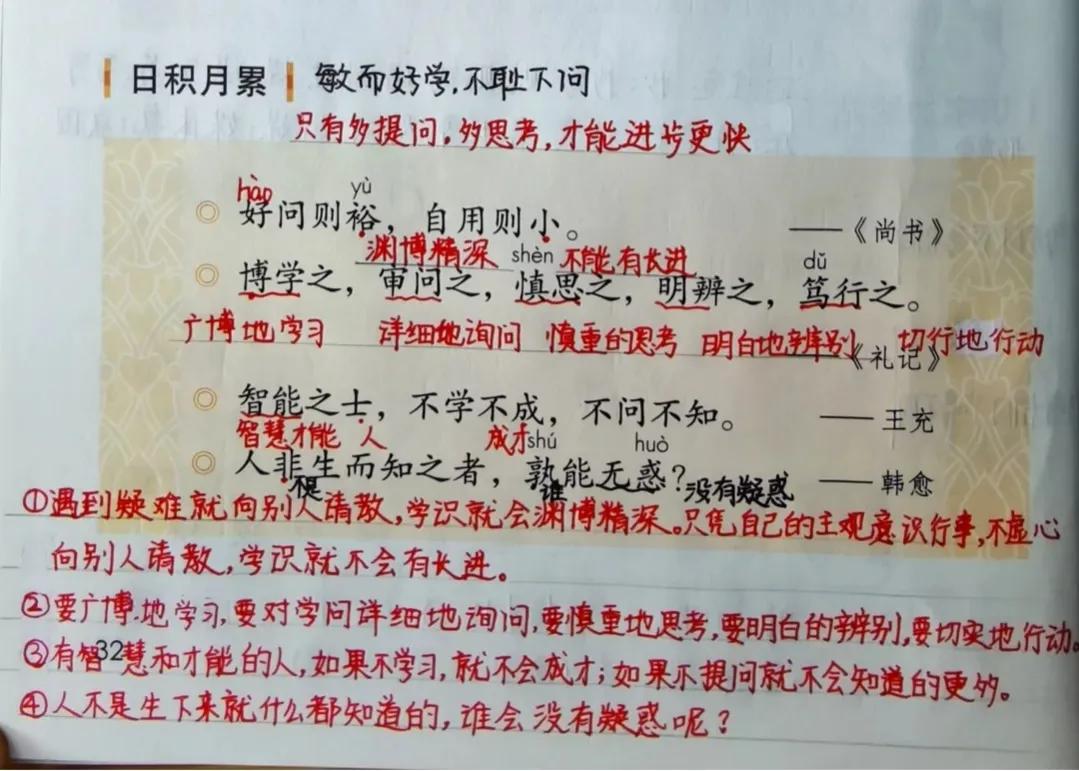 日积月累 敏而好学,不耻下问
只有多提问,多思考,才能进步更快
hào yù
好问则裕，自用则小。 ——《尚书》
渊博精深 shèn 不能有长进 dǔ
博学之，审问之，慎思之，明辨之，笃行之。
广博地学习 详细地询问 慎重的思考 明白地辨别 切行地行动
《礼记》
智能之士，不学不成，不问不知。 ——王充
智慧才能 人 成才 shú huò
人非生而知之者，孰能无惑? ——韩愈
不是 谁 没有疑惑
①遇到疑难就向别人请教,学识就会渊博精深。只凭自己的主观意识行事,不虚心
向别人请教,学识就不会有长进。
②要广博地学习,要对学问详细地询问,要慎重地思考,要明白的辨别,要切实地行动。
32
③有智慧和才能的人,如果不学习,就不会成才;如果不提问就不会知道的更多。
④人不是生下来就什么都知道的,谁会没有疑惑呢?